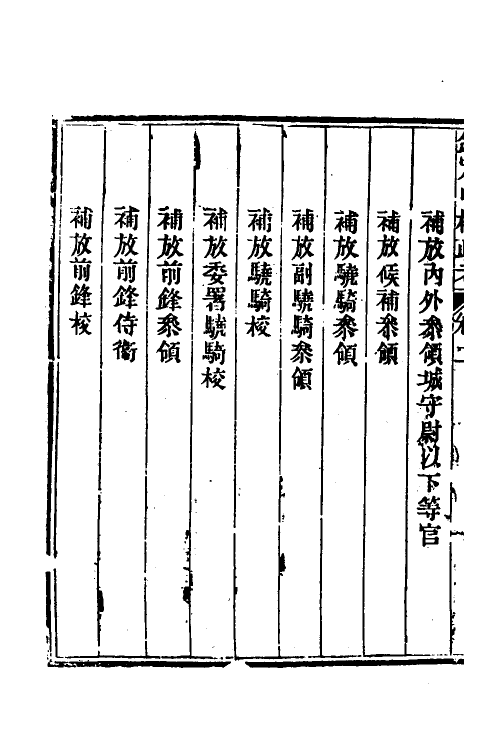 補放內外叅領城守尉以下等官
補放候補叅領
補放驍騎叅領
補放副驍騎叅領
補放驍騎校
補放委署驍騎校
補放前鋒叅領
補放前鋒侍衞
補放前鋒校